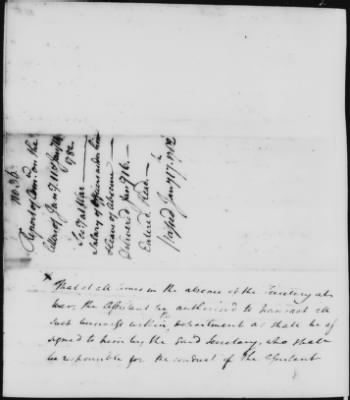 No 26
Report of Comee. on the
Letter of Jan 9. 11 of Jany
1782
Secy at War
Salary of Officers under him
Leave of Absence
Delivered Jany 16.
Entered. Read.
Passed Jany 17. 1782
That at all times in the absence of the Secretary at
war, the Assistant be authorised to transact all
such business within Department as shall be as
signed to him by the said Secretary, who shall
be responsible for the conduct of the Assistant